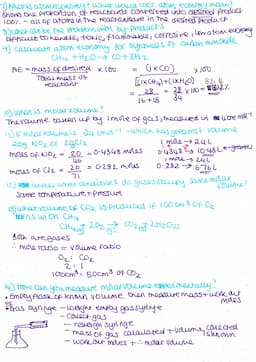 7) What is atom economy? What would 100% atom economy mean?
Shows the proportion of reactants converted into desired product
100% - all of atoms in the reactants are in the desired product
8) What can be the problem with by-products
difficult to handle, toxic, flammable, corrosive, low atom economy
9) Calculate atom economy for synthesis of carbon monoxide
CH4 + H2O → CO + 3H2
AE = mass of desired x 100
Total mass of reactant
= (1 x CO) x 100
(1 x CH4) + (1 x H2O)
= 28 = 28 x 100 = 82.4%
16 + 18 34
10) What is molar volume?
The volume taken up by 1 mole of gas, measured in
11) If molar volume is 24 Lmol-1 - which has greatest volume
20g NO2 or 20g Cl2
moles of NO2 = 20 = 0.4348 moles
46
moles of Cl2 = 20 = 0.282 moles
71
1 mole → 24L
0.4348 → 10.43L ← greatest
1 mole → 24L
0.282 → 6.76L
12) Under what conditions do gases occupy same molar volume?
Same temperature + pressure
13) What volume of CO2 is produced if 100cm3 of O2
burns with CH4
CH4 + 2O2 → CO2 + 2H2O
Both are gases
∴ mole ratio = volume ratio
O2 : CO2
2 : 1
100cm3 : 50cm3 of CO2
14) How can you measure molar volume experimentally?
• Empty flask of known volume then measure mass + work out moles
• Gas syringe - weigh empty gas syringe
- collect gas
- reweigh syringe
- mass of gas calculated + volume collected is known
- work out moles + ∴ molar volume